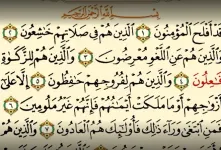 بِسْمِ اللَّهِ الرَّحْمَٰنِ الرَّحِيمِ
قَدْ أَفْلَحَ الْمُؤْمِنُونَ ١ الَّذِينَ هُمْ فِي صَلَاتِهِمْ خَاشِعُونَ ٢
وَالَّذِينَ هُمْ عَنِ اللَّغْوِ مُعْرِضُونَ ٣ وَالَّذِينَ هُمْ لِلزَّكَاةِ
فَاعِلُونَ ٤ وَالَّذِينَ هُمْ لِفُرُوجِهِمْ حَافِظُونَ ٥ إِلَّا عَلَىٰ
أَزْوَاجِهِمْ أَوْ مَا مَلَكَتْ أَيْمَانُهُمْ فَإِنَّهُمْ غَيْرُ مَلُومِينَ ٦
فَمَنِ ابْتَغَىٰ وَرَاءَ ذَٰلِكَ فَأُولَٰئِكَ هُمُ الْعَادُونَ ٧ وَالَّذِينَ هُمْ